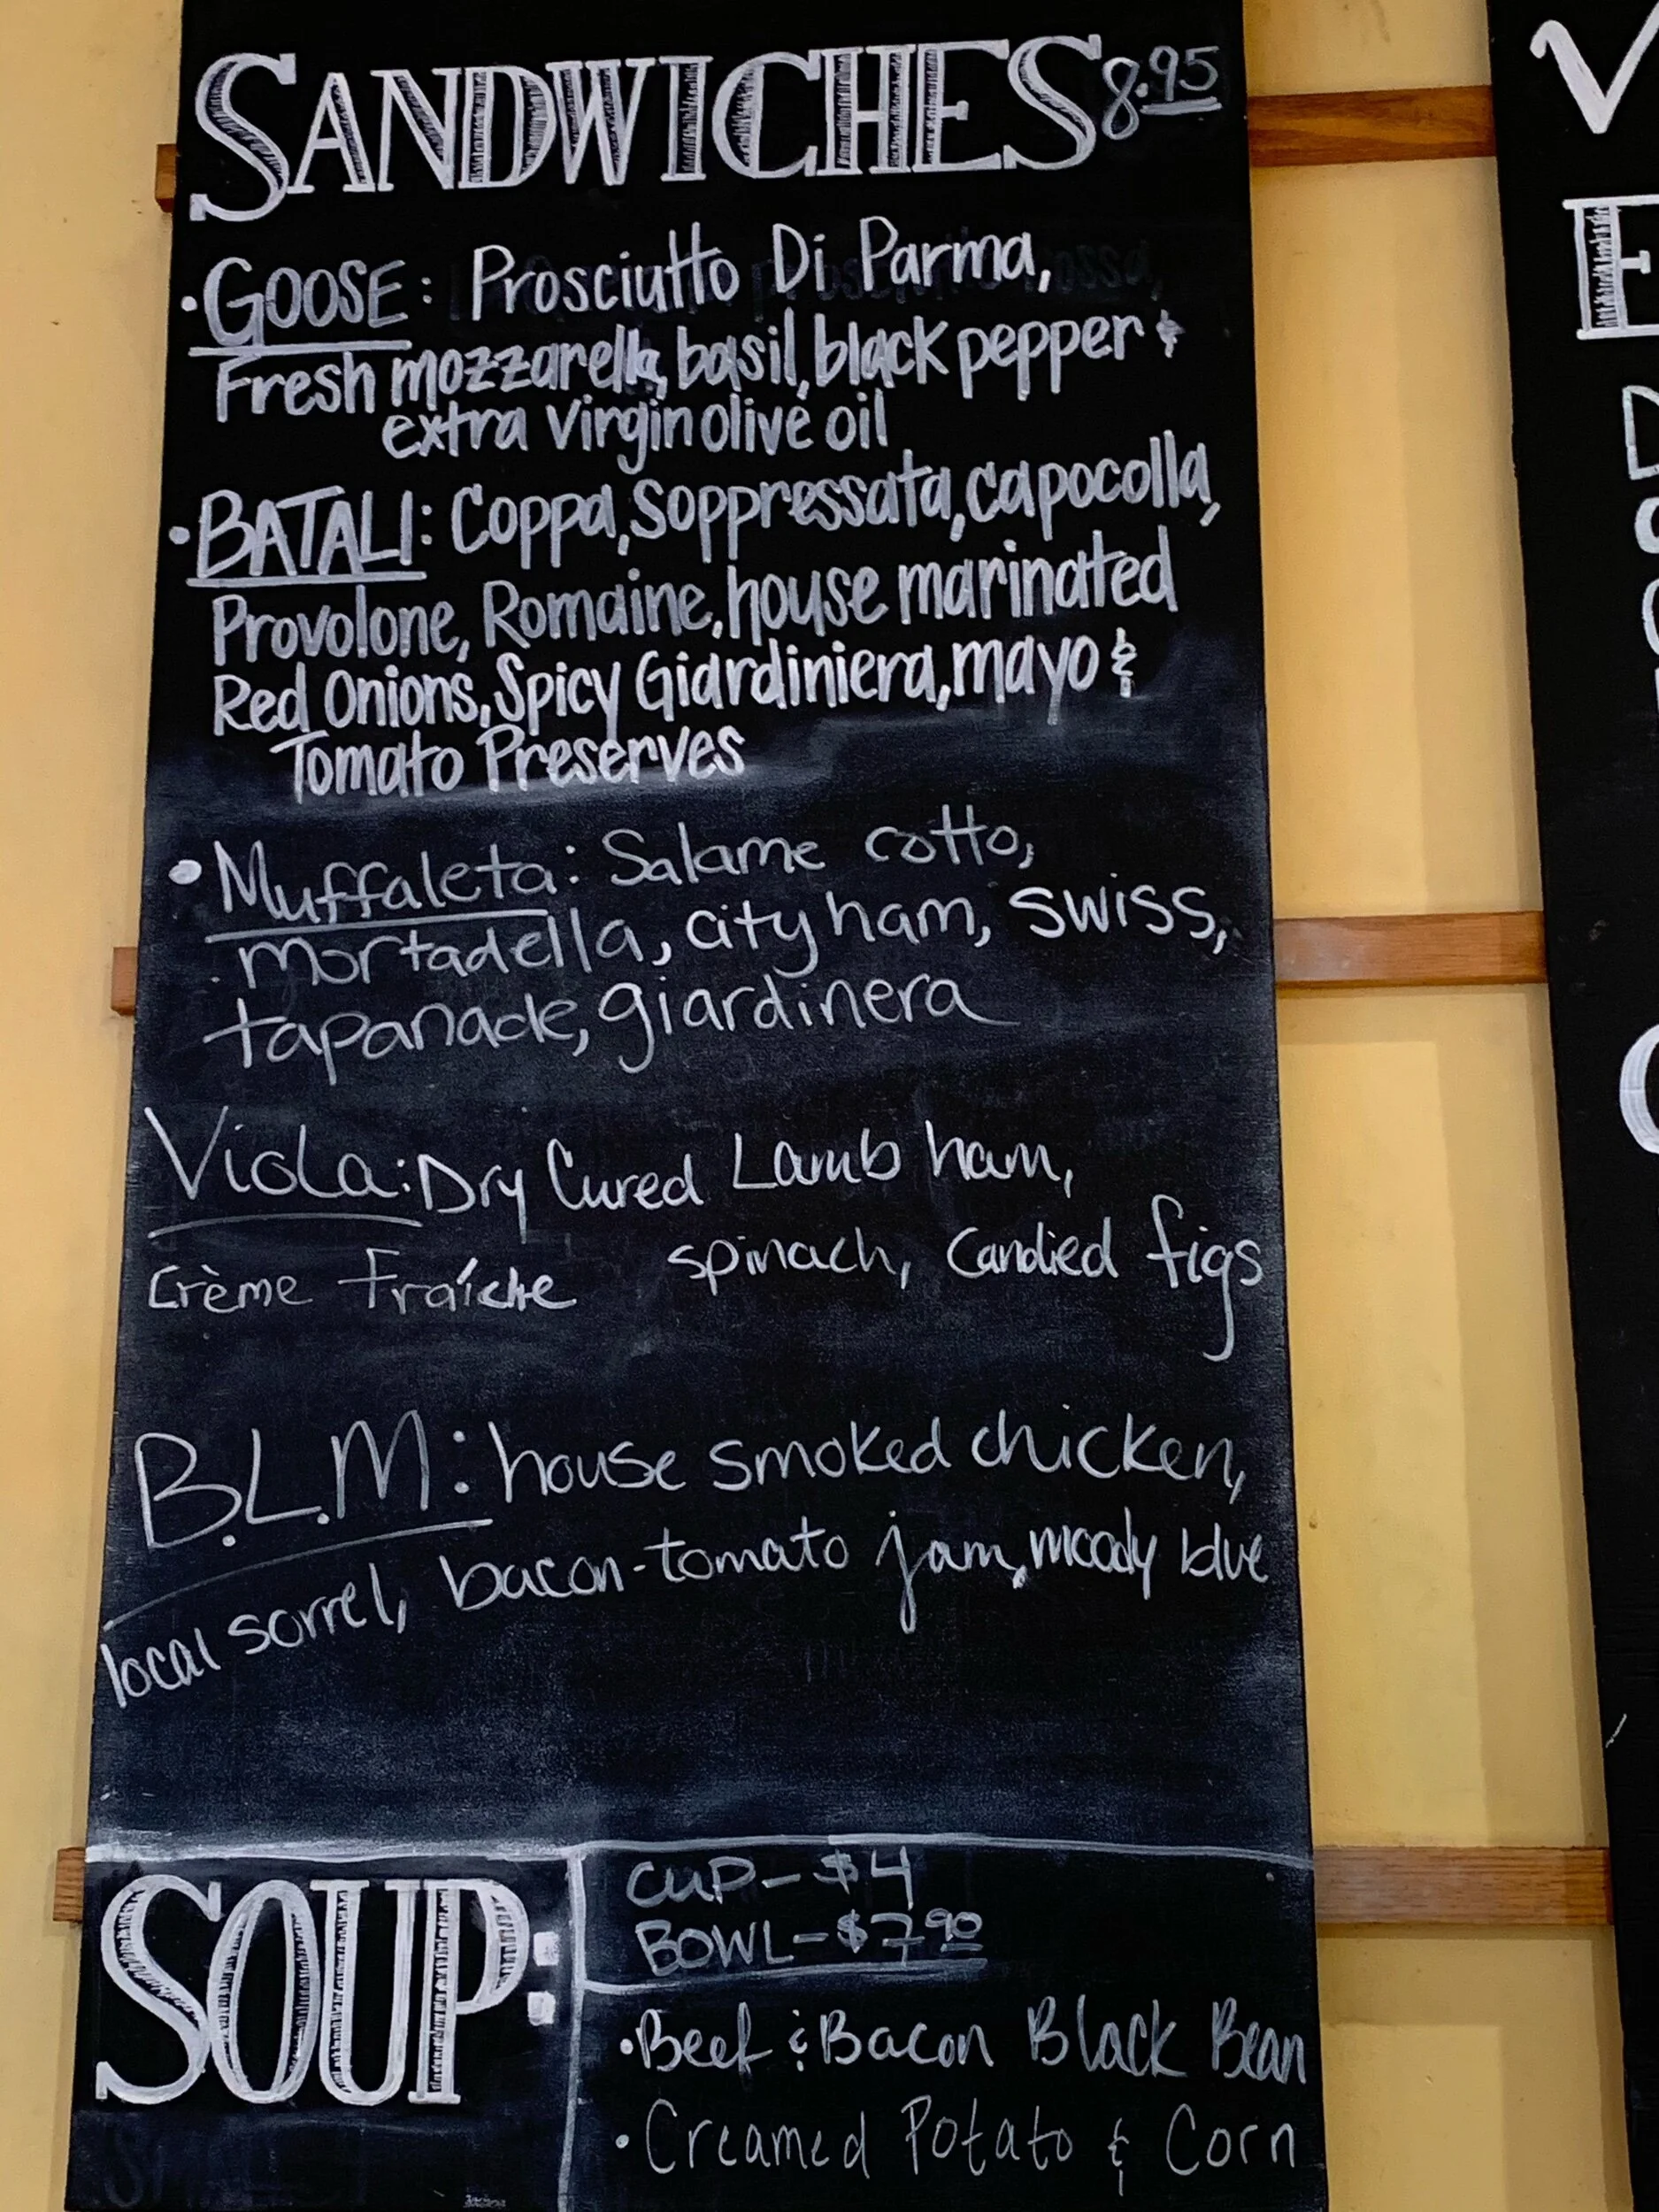 SANDWICHES 8.95
• GOOSE: Prosciutto Di Parma,
Fresh mozzarella, basil, black pepper &
extra virgin olive oil
• BATALI: Coppa, Soppressata, capocolla,
Provolone, Romaine, house marinated
Red Onions, Spicy Giardiniera, mayo &
Tomato Preserves
• Muffaleta: Salame cotto,
mortadella, city ham, swiss,
tapanade, giardinera
Viola: Dry Cured Lamb ham,
Crème Fraíche spinach, Candied figs
B.L.M: house smoked chicken,
local sorrel, bacon-tomato jam, moody blue
SOUP:
CUP- $4
BOWL- $7.90
• Beef & Bacon Black Bean
• Creamed Potato & Corn